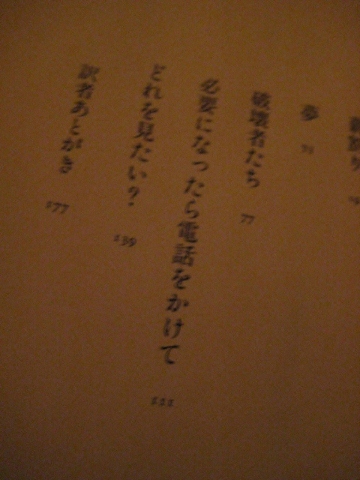 夢
破壊者たち 77
必要になったら電話をかけて 111
どれを見たい? 139
訳者あとがき 177